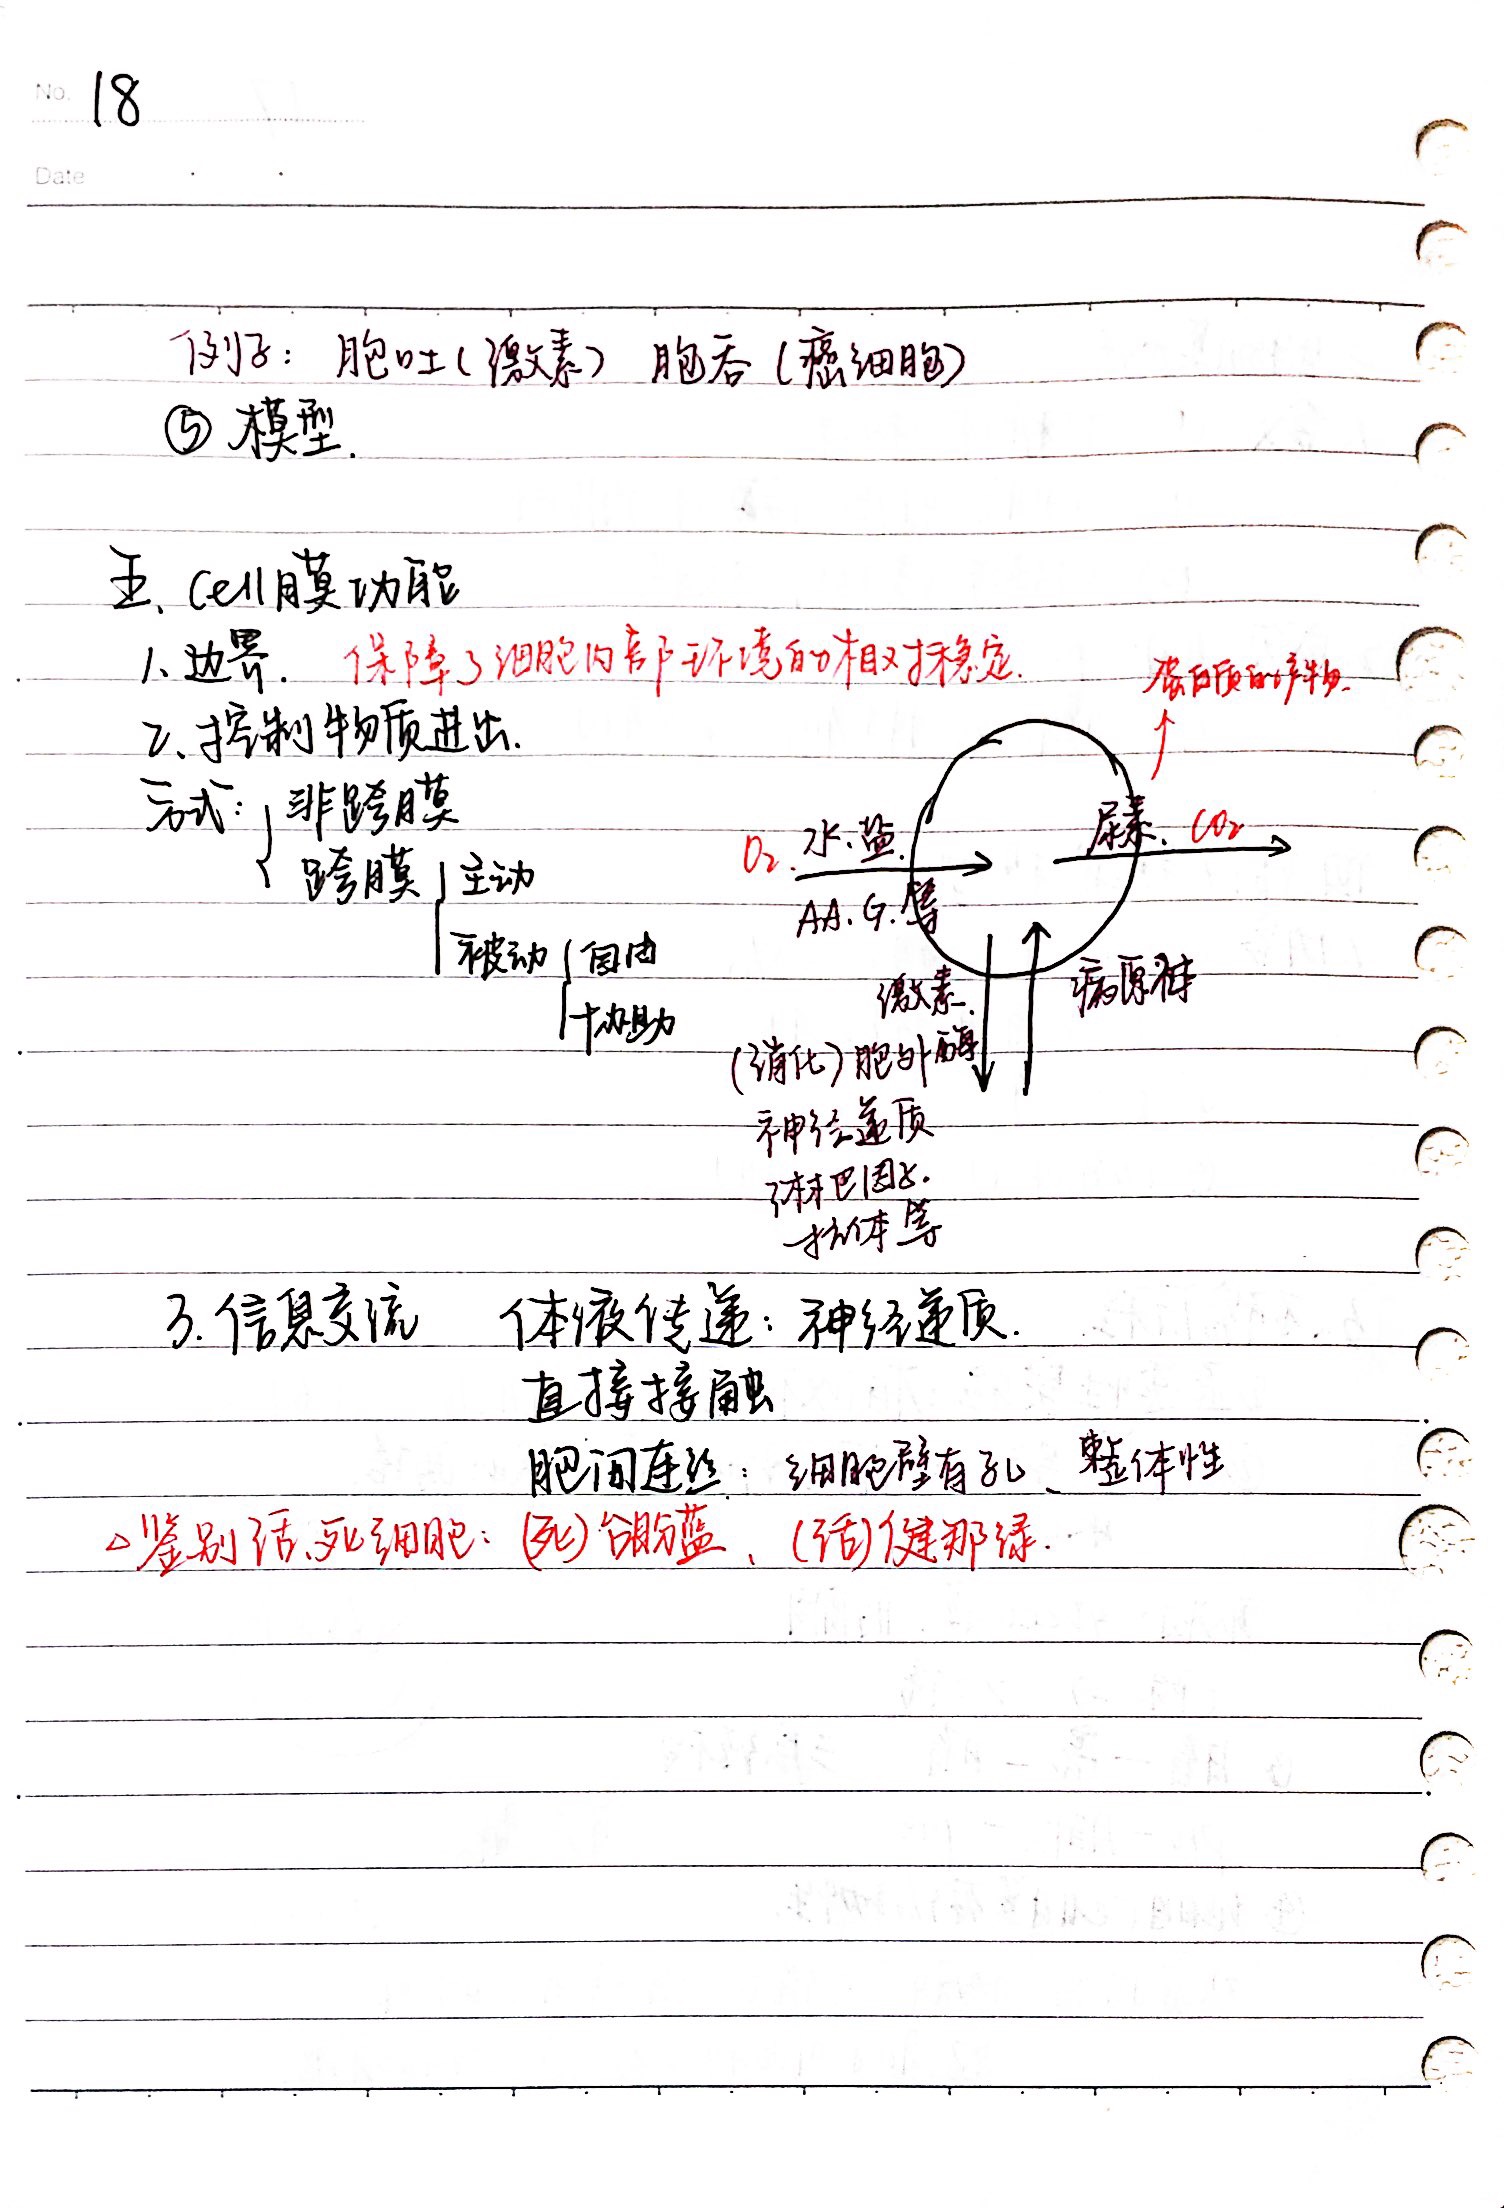 No. 18
Date
例子：胞吐（激素） 胞吞（癌细胞）
⑤ 模型.
五、Cell膜功能
1、边界. 保障了细胞内部环境的相对稳定.
2、控制物质进出.
方式： 非跨膜
跨膜 主动
被动 自由
协助
蛋白质的产物.
O₂. 水、盐.
AA. G. 等
尿素、CO₂
激素.
(消化) 胞外酶
神经递质
淋巴因子.
抗体等
病原体
3. 信息交流 体液传递：神经递质.
直接接触
胞间连丝：细胞壁有孔、整体性
△鉴别活、死细胞：(死) 台盼蓝、(活) 健那绿.